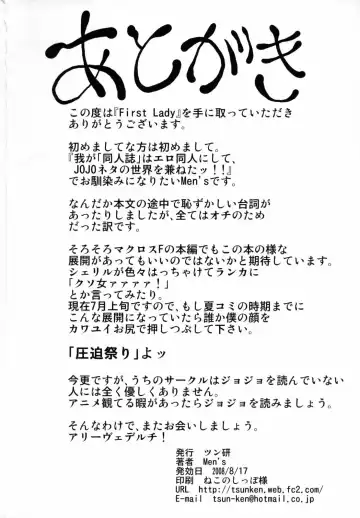 あとがき
この度は『First Lady』を手に取っていただき
ありがとうございます。
初めましてな方は初めまして。
『我が「同人誌」はエロ同人にして、
JOJOネタの世界を兼ねたッ！！』
でお馴染みになりたいMen'sです。
なんだか本文の途中で恥ずかしい台詞が
あったりしましたが、全てはオチのため
だった訳です。
そろそろマクロスFの本編でもこの本の様な
展開があってもいいのではないかと期待しています。
シェリルが色々はっちゃけてランカに
「クソ女ァァァァ！」
とか言ってみたり。
現在7月上旬ですので、もし夏コミの時期までに
こんな展開になっていたら誰か僕の顔を
カワユイお尻で押しつぶして下さい。
「圧迫祭り」よッ
今更ですが、うちのサークルはジョジョを読んでいない
人には全く優しくありません。
アニメ観てる暇があったらジョジョを読みましょう。
そんなわけで、またお会いしましょう。
アリーヴェデルチ！
発行 ツン研
著者 Men's
発効日 2008/8/17
印刷 ねこのしっぽ様
URL http://tsunken.web.fc2.com/
E-mail tsun-ken@hotmail.co.jp